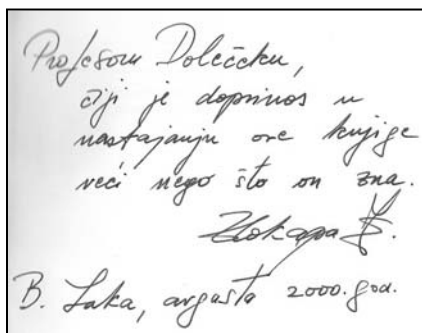 Profesoru Dolečeku,
čiji je doprinos u
nastajanju ove knjige
veći nego što on zna.
Zlokapa Z.
B. Luka, avgusta 2000. god.